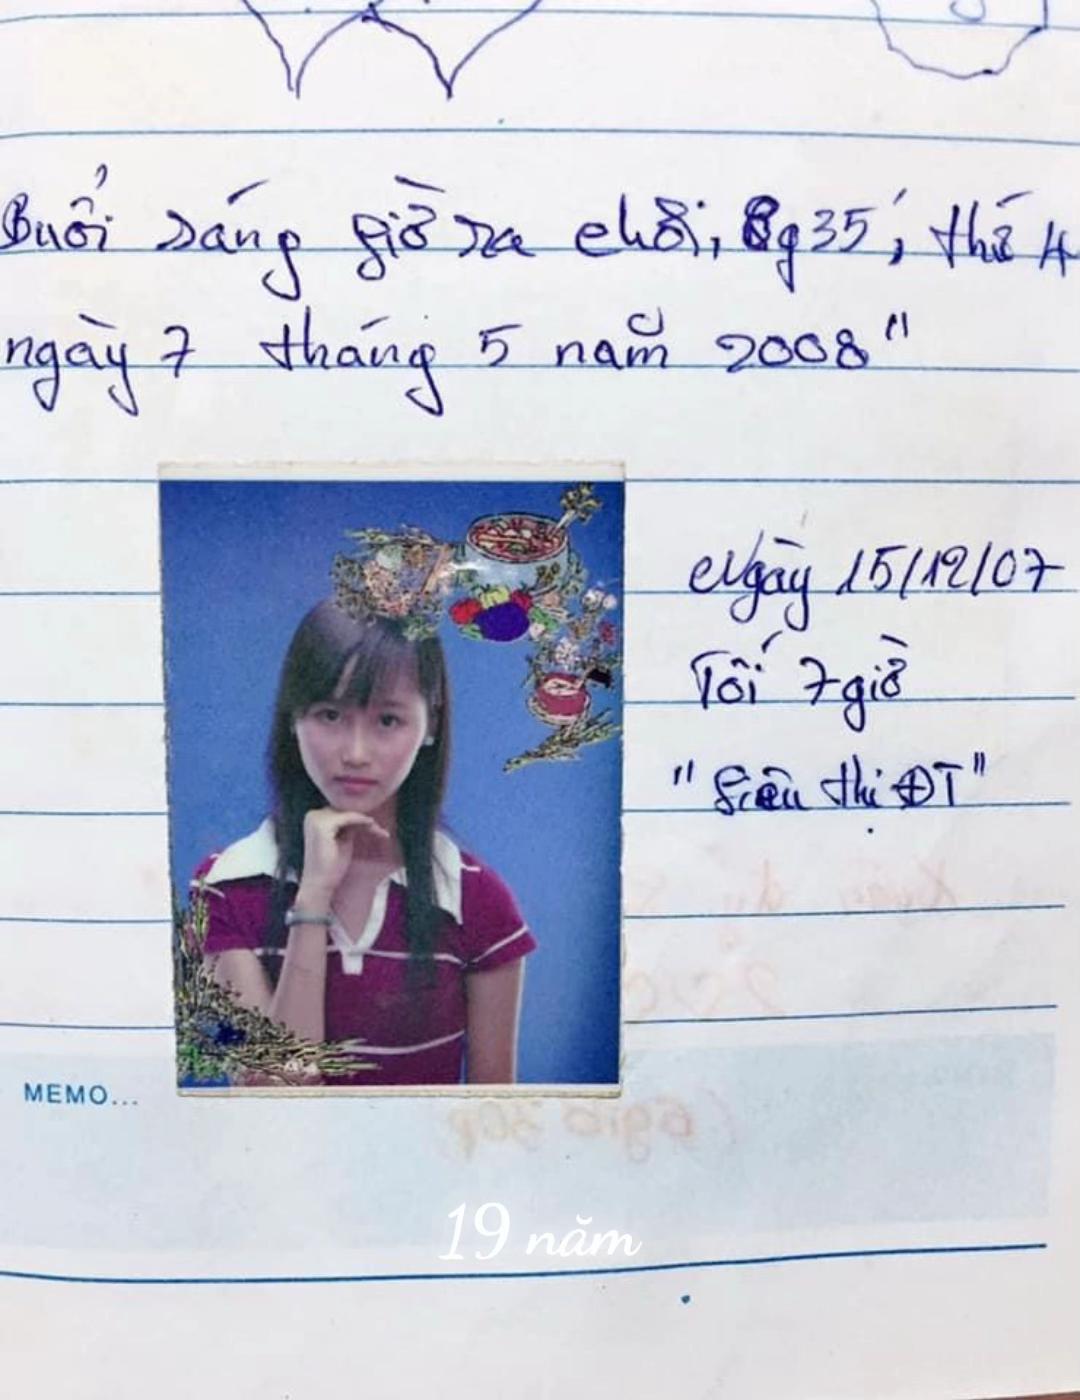 Buổi sáng giờ ra chơi, 8g35', thứ 4
ngày 7 tháng 5 năm 2008"
Ngày 15/12/07
Tối 7 giờ
"Siêu thị ĐT"
MEMO...
(6giờ 30p
19 năm